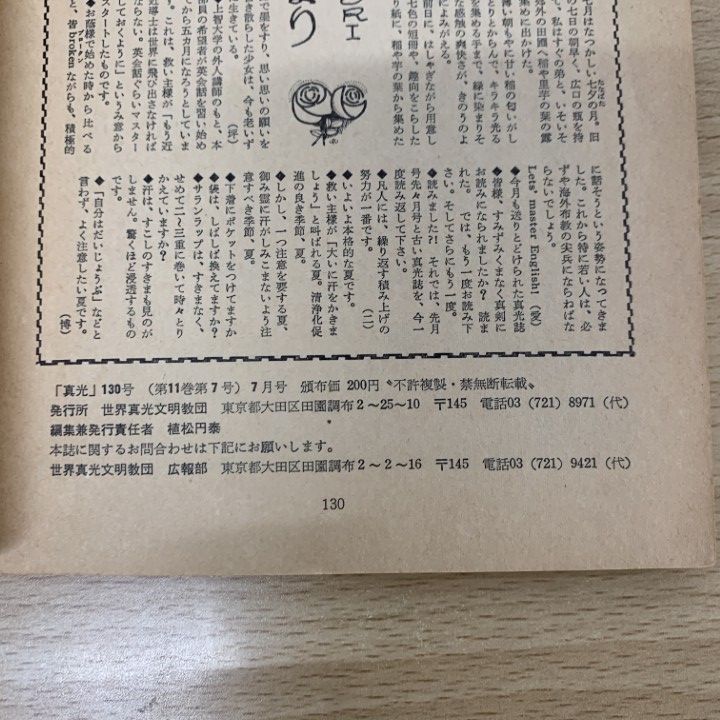 七月はなつかしい七夕の月。旧
の七日の朝早く、広口の瓶を持
、私はすぐの弟と、いそいそ
郊外の田圃へ稲や里芋の葉の露
集めに出かけた。
薄い朝もやに甘い稲の匂いがし
とりとからんで、キラキラ光る
を集める手まで、緑に染まりそ
な感触の爽快さが、きのうのよ
によみがえる。
前日に、はしゃぎながら用意し
七色の短冊や、趣向をこらした
り紙に、稲や芋の葉から集めた
URI
より
で墨をすり、思い思いの願いを
き散らした少女は、今も老いず
生きている。
(坪)
上智大学の外人講師のもと、本
部員の希望者が英会話を習い始め
てから五カ月になろうとしていま
。これは、救い主様が「もう近
導士は世界に飛び出さなければ
らない。英会話ぐらいマスター
ておくように」というみ意から
スタートしたものです。
◆お蔭様で始めた時から比べる
、皆brokenながらも、積極的
ブロークン
に話そうという姿勢になってきま
した。これから特に若い人は、必
ずや海外布教の尖兵にならねばな
らないでしょう。
Lets' master English! (愛)
◆今月も送りとどけられた真光誌
◆皆様、すみずみくまなく真剣に
お読みになられましたか? 読ま
れた。では、もう一度お読み下
さい。そしてさらにもう一度。
◆読みました?! それでは、先月
号先々月号と古い真光誌を、今一
度読み返して下さい。
◆凡人には、繰り返す積み上げの
努力が一番です。
(二)
◆いよいよ本格的な夏です。
◆救い主様が「大いに汗をかきま
しょう」と叫ばれる夏。清浄化促
進の良き季節、夏。
◆しかし、一つ注意を要する夏、
御み霊に汗がしみこまないよう注
意すべき季節、夏。
◆下着にポケットをつけてますか
◆袋は、しばしば換えてますか?
◆サランラップは、すきまなく、
せめて二〜三重に巻いて時々とり
かえていますか?
◆汗は、すこしのすきまも見のが
しません。驚くほど浸透するもの
です。
◆「自分はだいじょうぶ」などと
言わず、よく注意したい夏です。
(博)
「真光」130号 (第11巻第7号) 7月号 頒布価 200円 〝不許複製・禁無断転載〟
発行所 世界真光文明教団 東京都大田区田園調布2〜25〜10 〒145 電話03 (721) 8971 (代)
編集兼発行責任者 植松円泰
本誌に関するお問合わせは下記にお願いします。
世界真光文明教団 広報部 東京都大田区田園調布2〜2〜16 〒145 電話03 (721) 9421 (代)
130